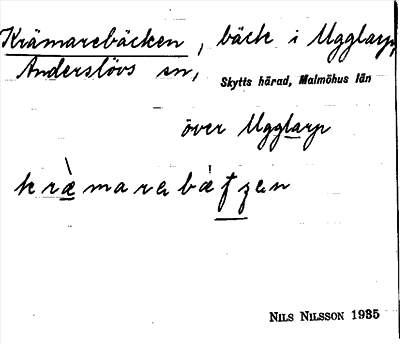 Krämarebäcken, bäck i Ugglarp,
Anderslövs sn, Skytts härad, Malmöhus län
över Ugglarp
NILS NILSSON 1935